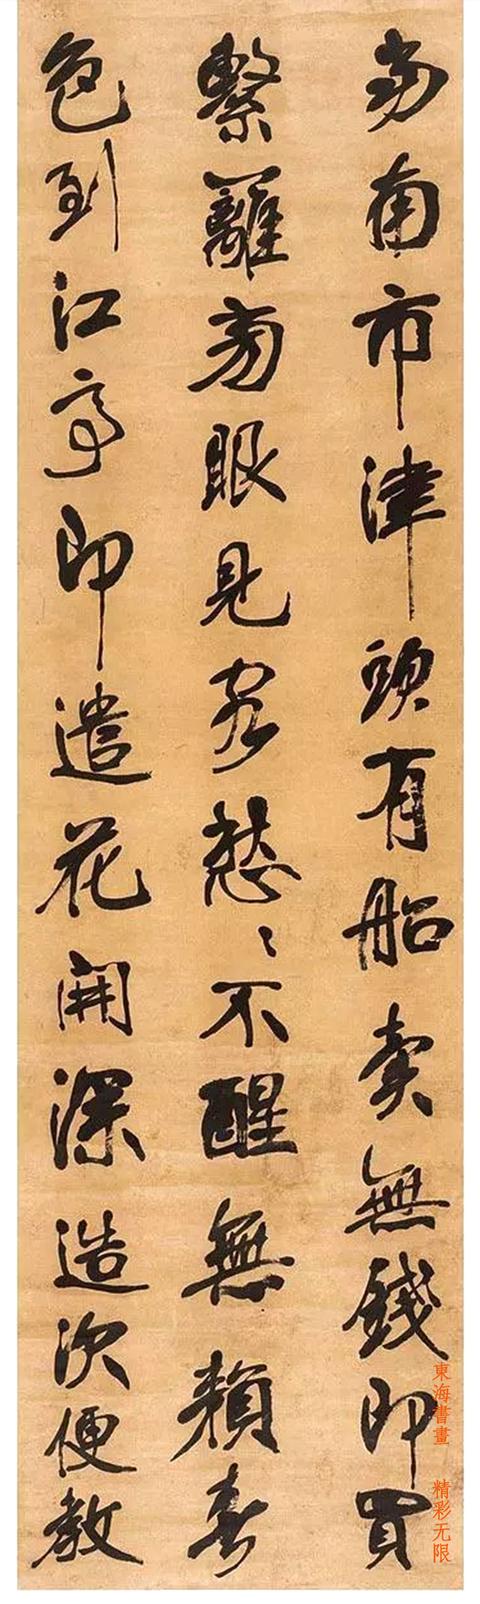 當南市津頭有船賣無錢即買
繫籬旁眼見客愁々不醒無賴春
色到江亭即遣花開深造次便教
東海書畫 精彩无限